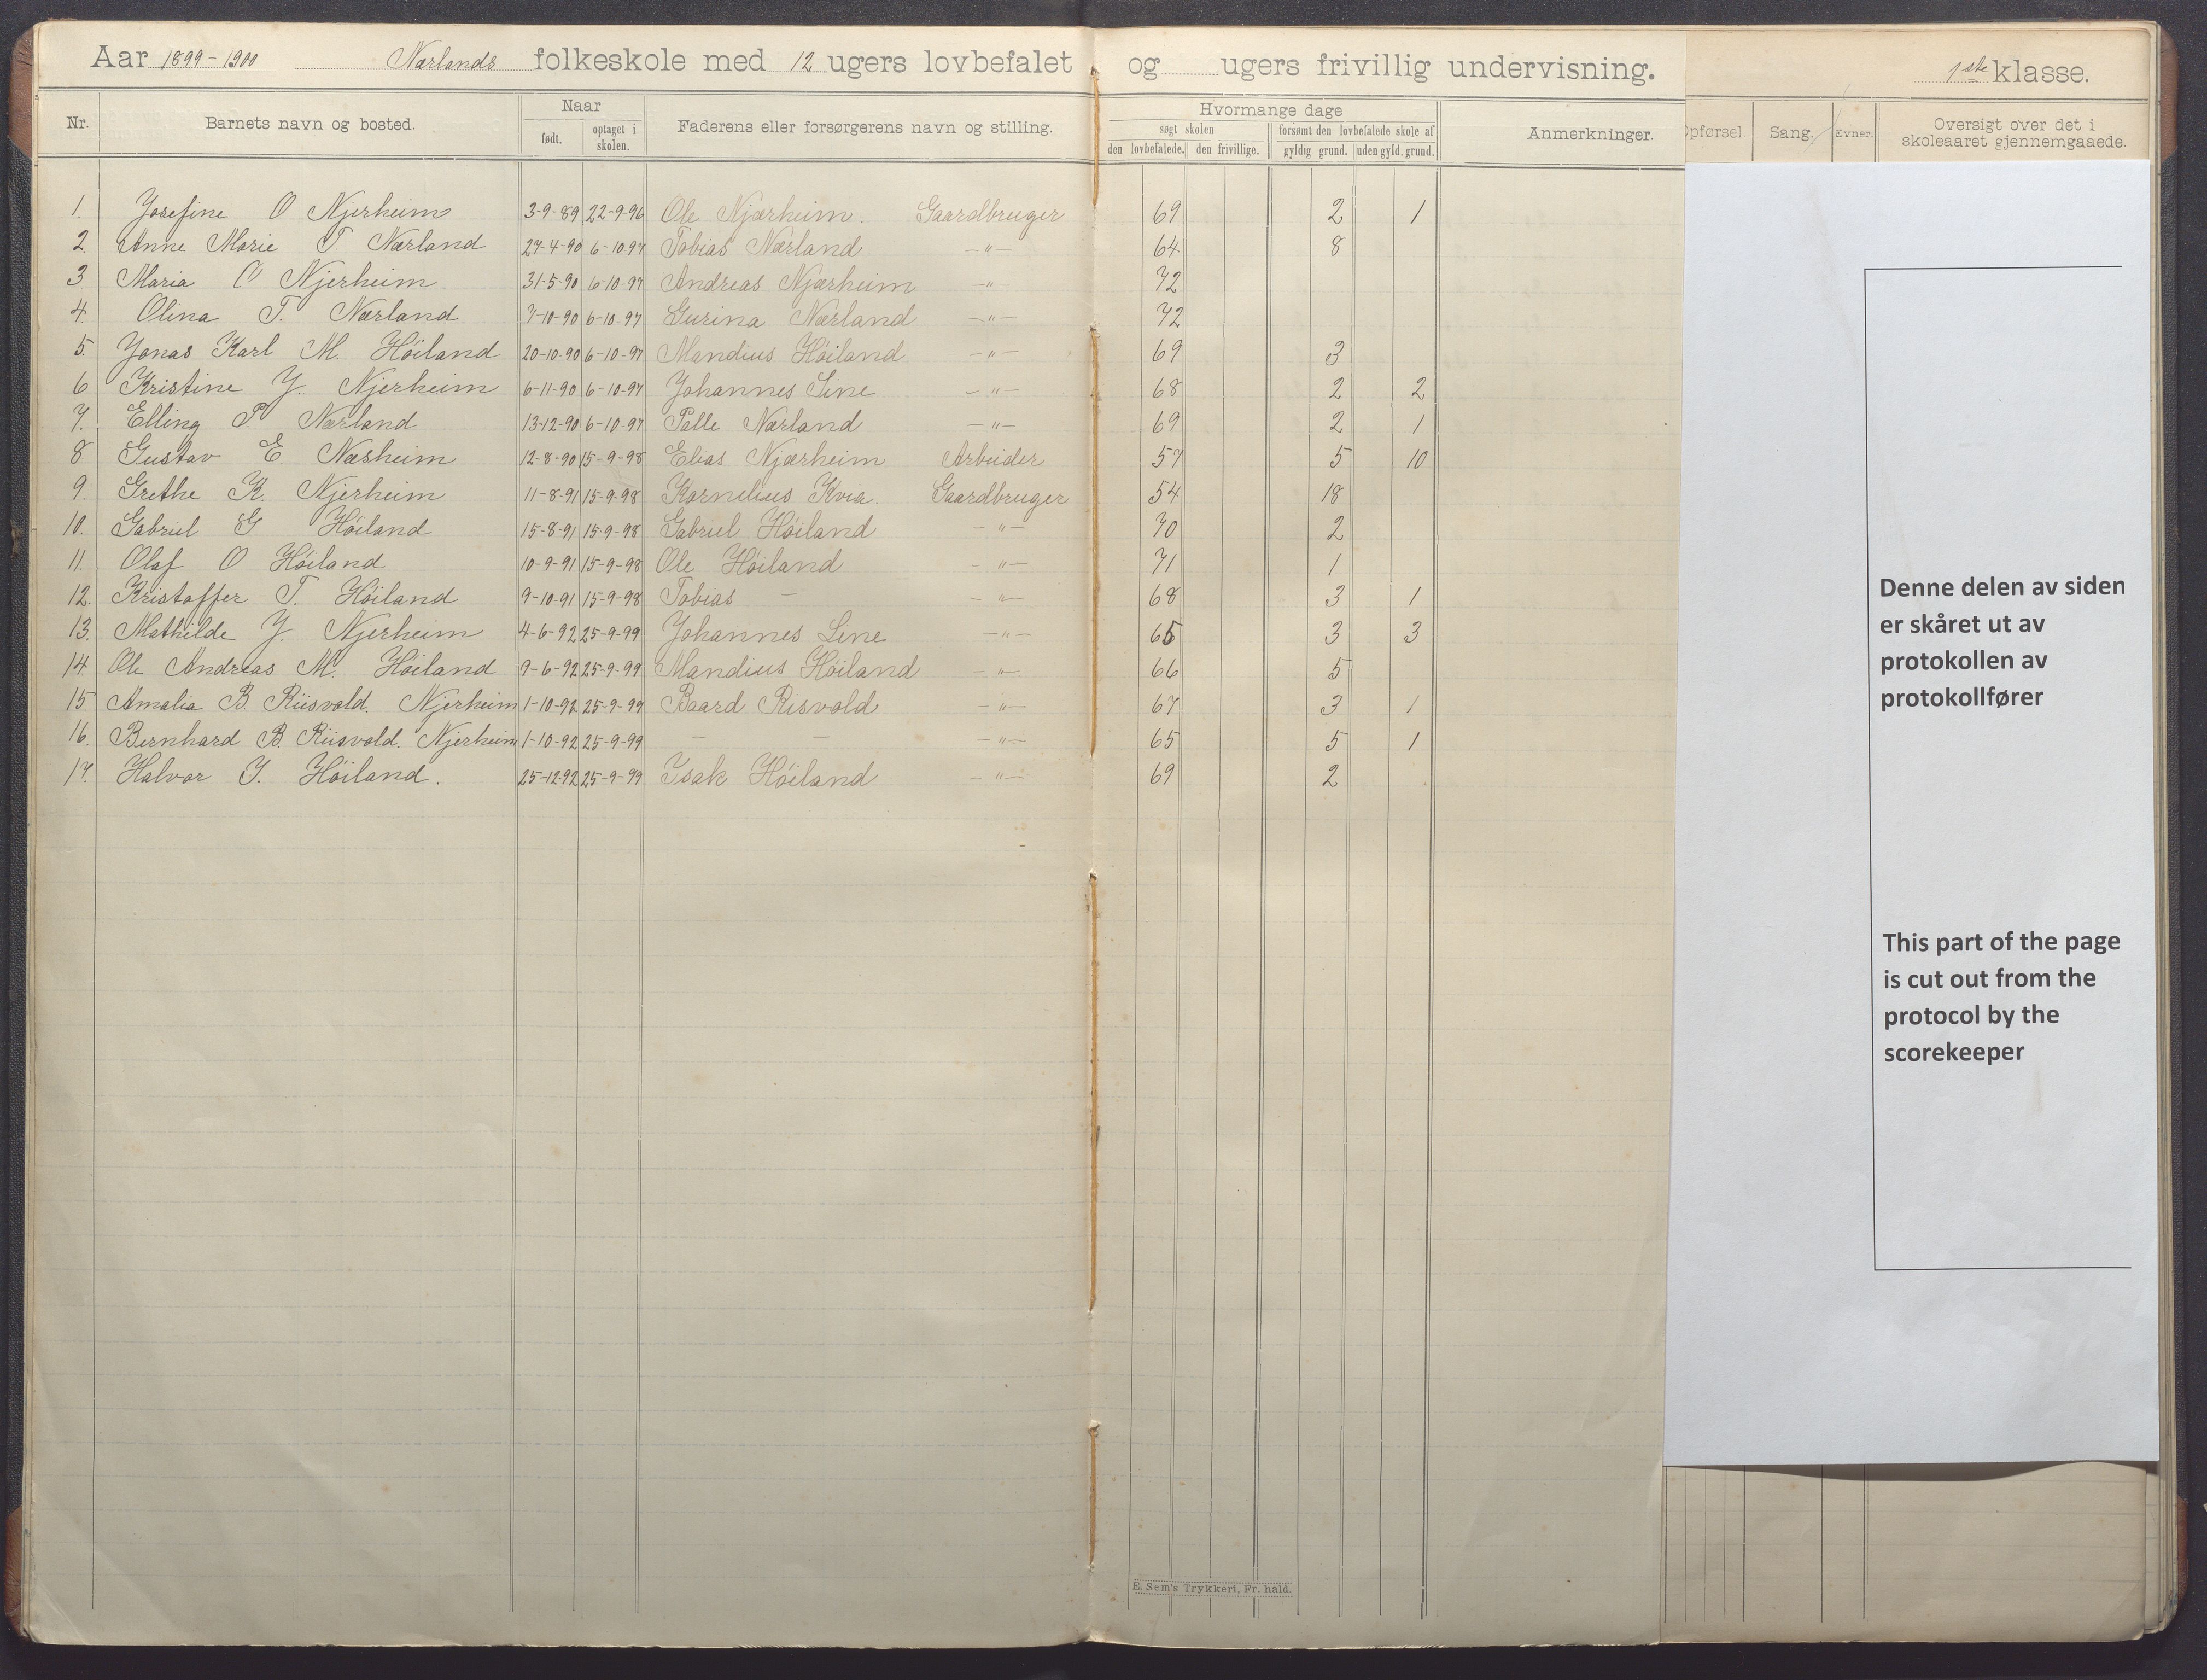 Aar 1899-1900 Nærlands folkeskole med 12 ugers lovbefalet og ugers frivillig undervisning. 1ste klasse.
Nr. Barnets navn og bosted. Naar Faderens eller forsørgerens navn og stilling. Hvormange dage Anmerkninger. Opførsel. Sang. Evner. Oversigt over det i skoleaaret gjennemgaaede.
født. optaget i skolen. søgt skolen forsømt den lovbefalede skole af
den lovbefalede. den frivillige. gyldig grund. uden gyld. grund.
1. Josefine O Njerheim 3-9-89 22-9-96 Ole Njærheim. Gaardbruger 69 2 1
2. Anne Marie T. Nærland 27-4-90 6-10-97 Tobias Nærland -"- 64 8
3. Maria A Njerheim 31-5-90 6-10-97 Andreas Njærheim -"- 72
4. Olina T. Nærland 7-10-90 6-10-97 Gurina Nærland -"- 72
5. Jonas Karl M. Höiland 20-10-90 6-10-97 Mandius Höiland -"- 69 3
6 Kristine J. Njerheim 6-11-90 6-10-97 Johannes Line -"- 68 2 2
7. Elling P. Nærland 13-12-90 6-10-97 Palle Nærland -"- 69 2 1
8 Gustav E. Næsheim 12-8-90 15-9-98 Elias Njærheim Arbeider 57 5 10
9. Grethe K. Njerheim 11-8-91 15-9-98 Kornelius Kvia. Gaardbruger 54 18
10. Gabriel G Höiland 15-8-91 15-9-98 Gabriel Höiland -"- 70 2
11. Olaf O Höiland 10-9-91 15-9-98 Ole Höiland -"- 71 1
12. Kristoffer T. Höiland 9-10-91 15-9-98 Tobias - -"- 68 3 1
13. Mathilde J. Njerheim 4-6-92 25-9-99 Johannes Line -"- 65 3 3
14. Ole Andreas M. Höiland 9-6-92 25-9-99 Mandius Höiland -"- 66 5
15 Amalia B. Riisvold. Njerheim 1-10-92 25-9-99 Baard Risvold -"- 67 3 1
16. Bernhard B. Riisvold. Njerheim 1-10-92 25-9-99 - - -"- 65 5 1
17. Halvor I. Höiland. 25-12-92 25-9-99 Isak Höiland -"- 69 2
Denne delen av siden
er skåret ut av
protokollen av
protokollfører
This part of the page
is cut out from the
protocol by the
scorekeeper
E. Sem's Trykkeri, Fr. hald.